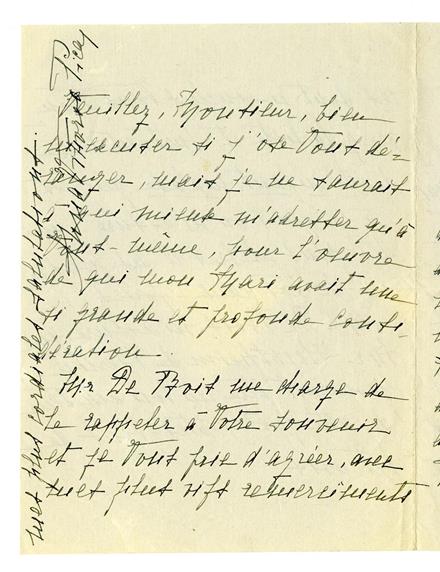 Veuillez, Monsieur, bien
m'excuser si j'ose Vous dé=
ranger, mais je ne saurais
à qui mieux m'adresser qu'à
Vous-même, pour l'oeuvre
de qui mon Mari avait une
si grande et profonde consi-
dération.
Mr De Bois me charge de
le rappeler à Votre souvenir
et je Vous prie d'agréer, avec
mes plus vifs remerciments
mes plus cordiales salutations.